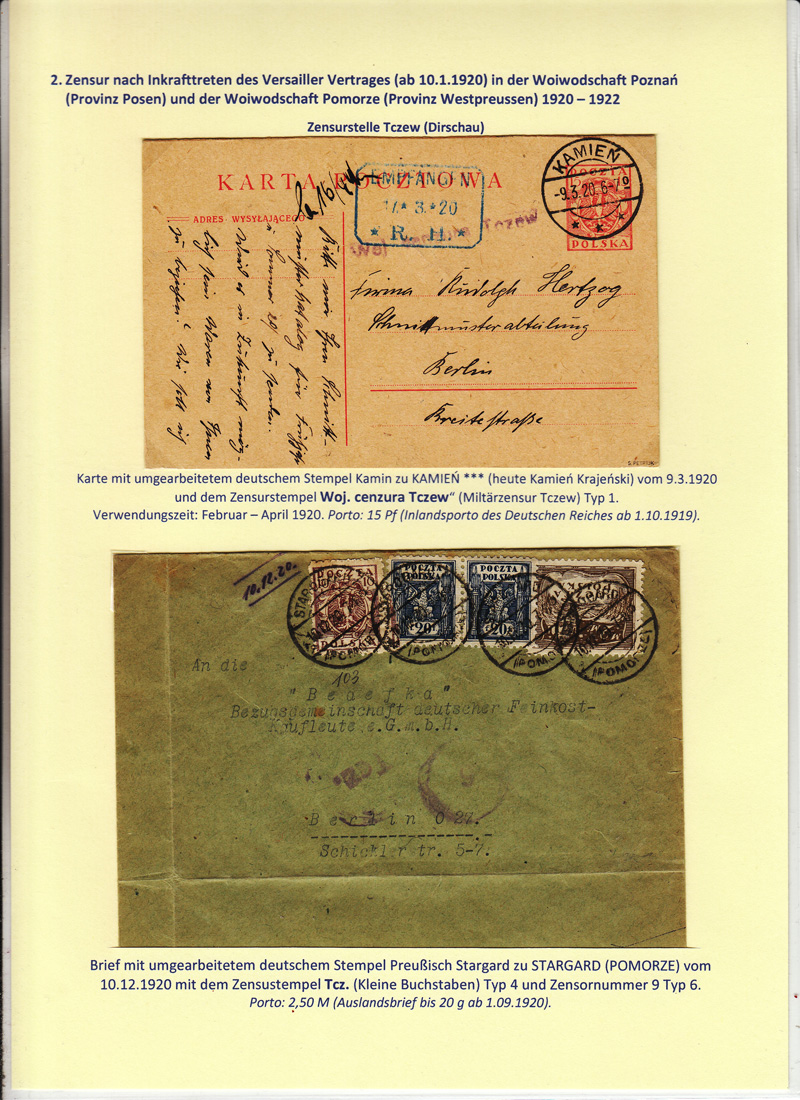 2. Zensur nach Inkrafttreten des Versailler Vertrages (ab 10.1.1920) in der Woiwodschaft Poznań
(Provinz Posen) und der Woiwodschaft Pomorze (Provinz Westpreussen) 1920 – 1922
Zensurstelle Tczew (Dirschau)
KARTA POCZTOWA
ADRES WYSYŁAJĄCEGO
EMPFANGEN
17.* 3.*20
* R. H. *
Woj. cenzura Tczew
KAMIEŃ
-9.3.20.6-7
* * *
POCZTA
POLSKA
Firma Rudolph Hertzog
Schnittmusterabteilung
Berlin
Breitestraße
Karte mit umgearbeitetem deutschem Stempel Kamin zu KAMIEŃ *** (heute Kamień Krajeński) vom 9.3.1920
und dem Zensurstempel Woj. cenzura Tczew“ (Miltärzensur Tczew) Typ 1.
Verwendungszeit: Februar – April 1920. Porto: 15 Pf (Inlandsporto des Deutschen Reiches ab 1.10.1919).
10.12.20.
POCZTA
10 10
POLSKA
POCZTA
POLSKA
20
POCZTA
POLSKA
20
STARGARD
(POMORZE)
An die
103
" B e d e f k a "
Bezugsgemeinschaft deutscher Feinkost-
Kaufleute e.G.m.b.H.
Tcz.
9
B e r l i n O 27.
Schicklerstr. 5-7.
Brief mit umgearbeitetem deutschem Stempel Preußisch Stargard zu STARGARD (POMORZE) vom
10.12.1920 mit dem Zensustempel Tcz. (Kleine Buchstaben) Typ 4 und Zensornummer 9 Typ 6.
Porto: 2,50 M (Auslandsbrief bis 20 g ab 1.09.1920).